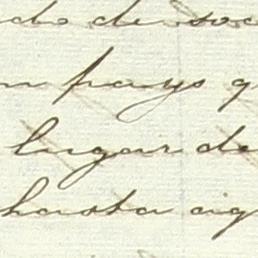 do de soc
n pays q
lugar de
hasta aig